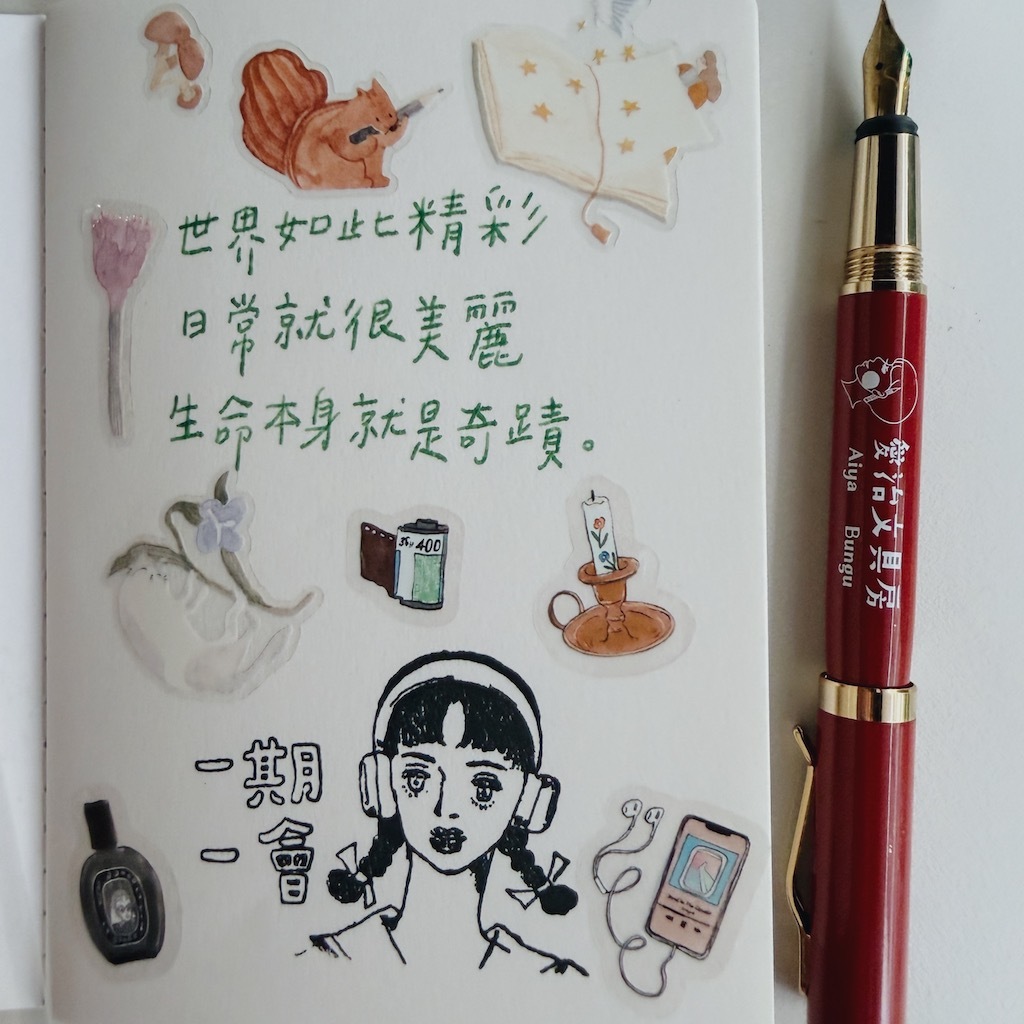 世界如此精彩
日常就很美麗
生命本身就是奇蹟。
400
一期
一會
文具房
Aiya Bungu